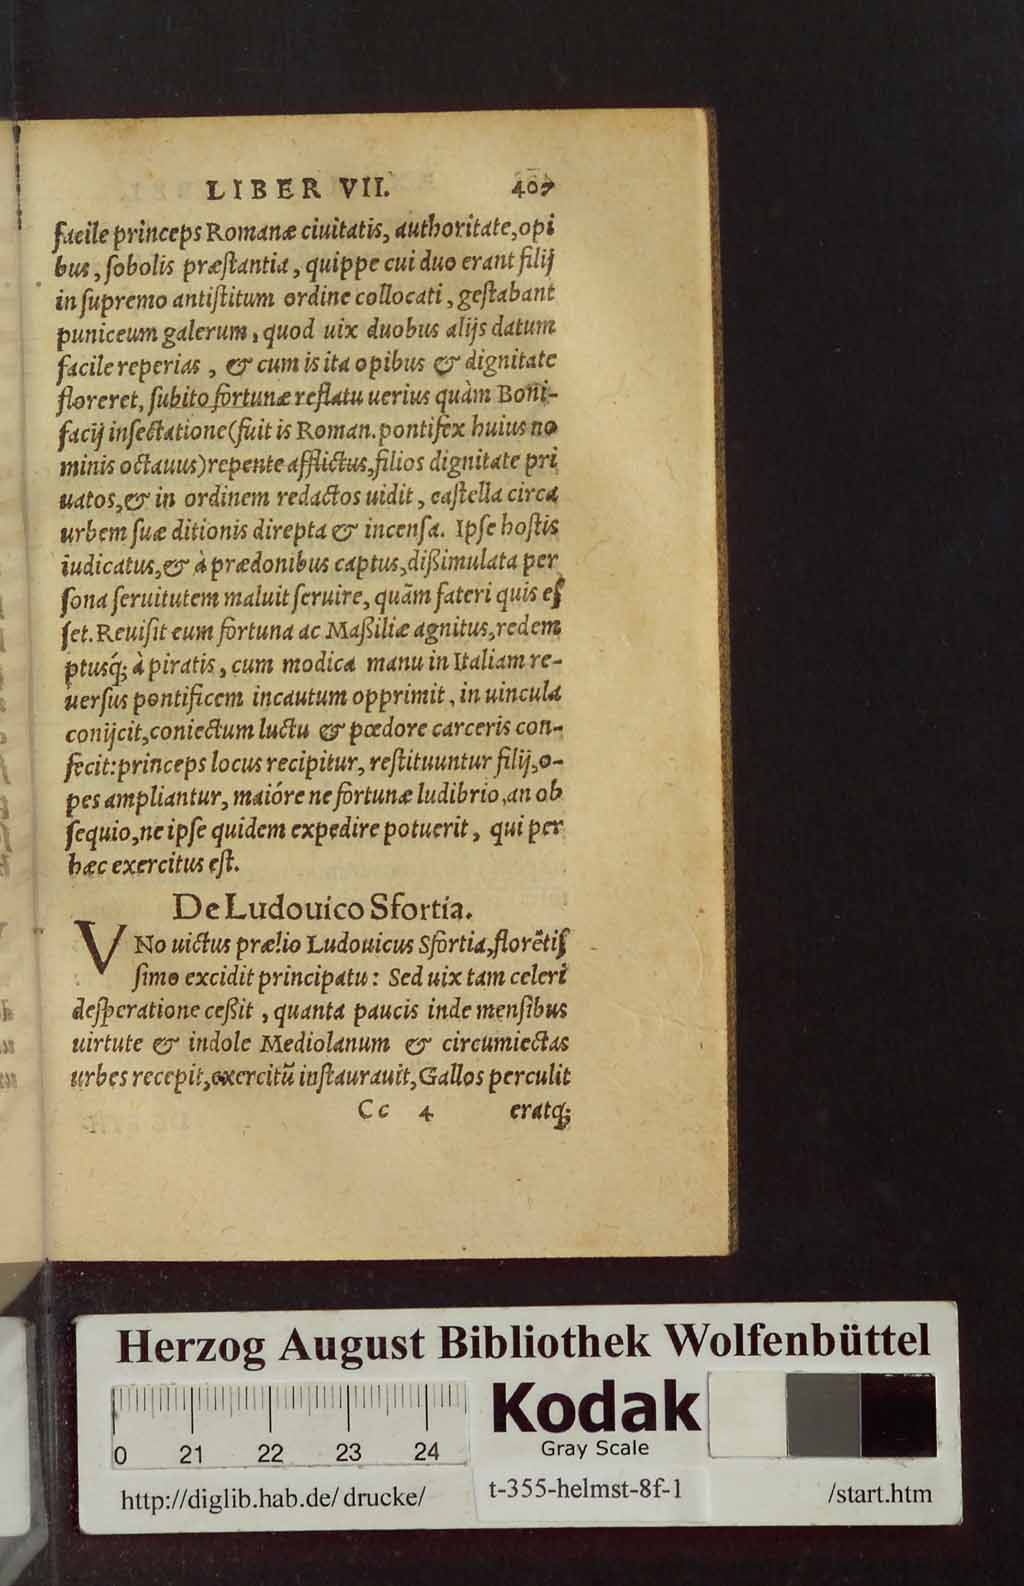 LIBER VII. 407
facile princeps Romanæ ciuitatis, authoritate, opi
bus, ſobolis præſtantia, quippe cui duo erant filij
in ſupremo antiſtitum ordine collocati, geſtabant
puniceum galerum, quod uix duobus alijs datum
facile reperias, & cum is ita opibus & dignitate
floreret, ſubito fortunæ reflatu uerius quàm Boni-
facij inſectatione (fuit is Roman. pontifex huius no
minis octauus) repente afflictus, filios dignitate pri
uatos, & in ordinem redactos uidit, caſtella circa
urbem ſuæ ditionis direpta & incenſa. Ipſe hoſtis
iudicatus, & à prædonibus captus, dißimulata per
ſona ſeruitutem maluit ſeruire, quãm fateri quis eſ
ſet. Reuiſit eum fortuna ac Maßiliæ agnitus, redem
ptusq́; à piratis, cum modica manu in Italiam re-
uerſus pontificem incautum opprimit, in uincula
conijcit, coniectum luctu & pœdore carceris con-
fecit: princeps locus recipitur, reſtituuntur filij, o-
pes ampliantur, maióre ne fortunæ ludibrio, an ob
ſequio, ne ipſe quidem expedire potuerit, qui per
hæc exercitus eſt.
De Ludouico Sfortia.
VNo uictus prælio Ludouicus Sfortia, florẽtiſ
ſimo excidit principatu: Sed uix tam celeri
deſperatione ceßit, quanta paucis inde menſibus
uirtute & indole Mediolanum & circumiectas
urbes recepit, exercitũ inſtaurauit, Gallos perculit
Cc 4 eratq;
Herzog August Bibliothek Wolfenbüttel
Kodak
Gray Scale
0 21 22 23 24
http://diglib.hab.de/drucke/ t-355-helmst-8f-1 /start.htm